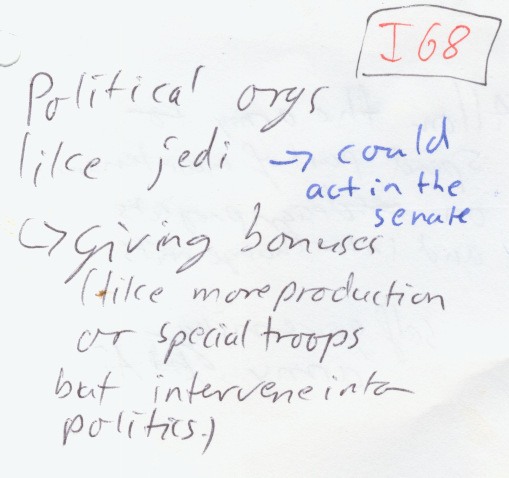 I68
Political orgs
like jedi → could
act in the
senate
↳ giving bonuses
(like more production
or special troops
but intervene into
politics.)